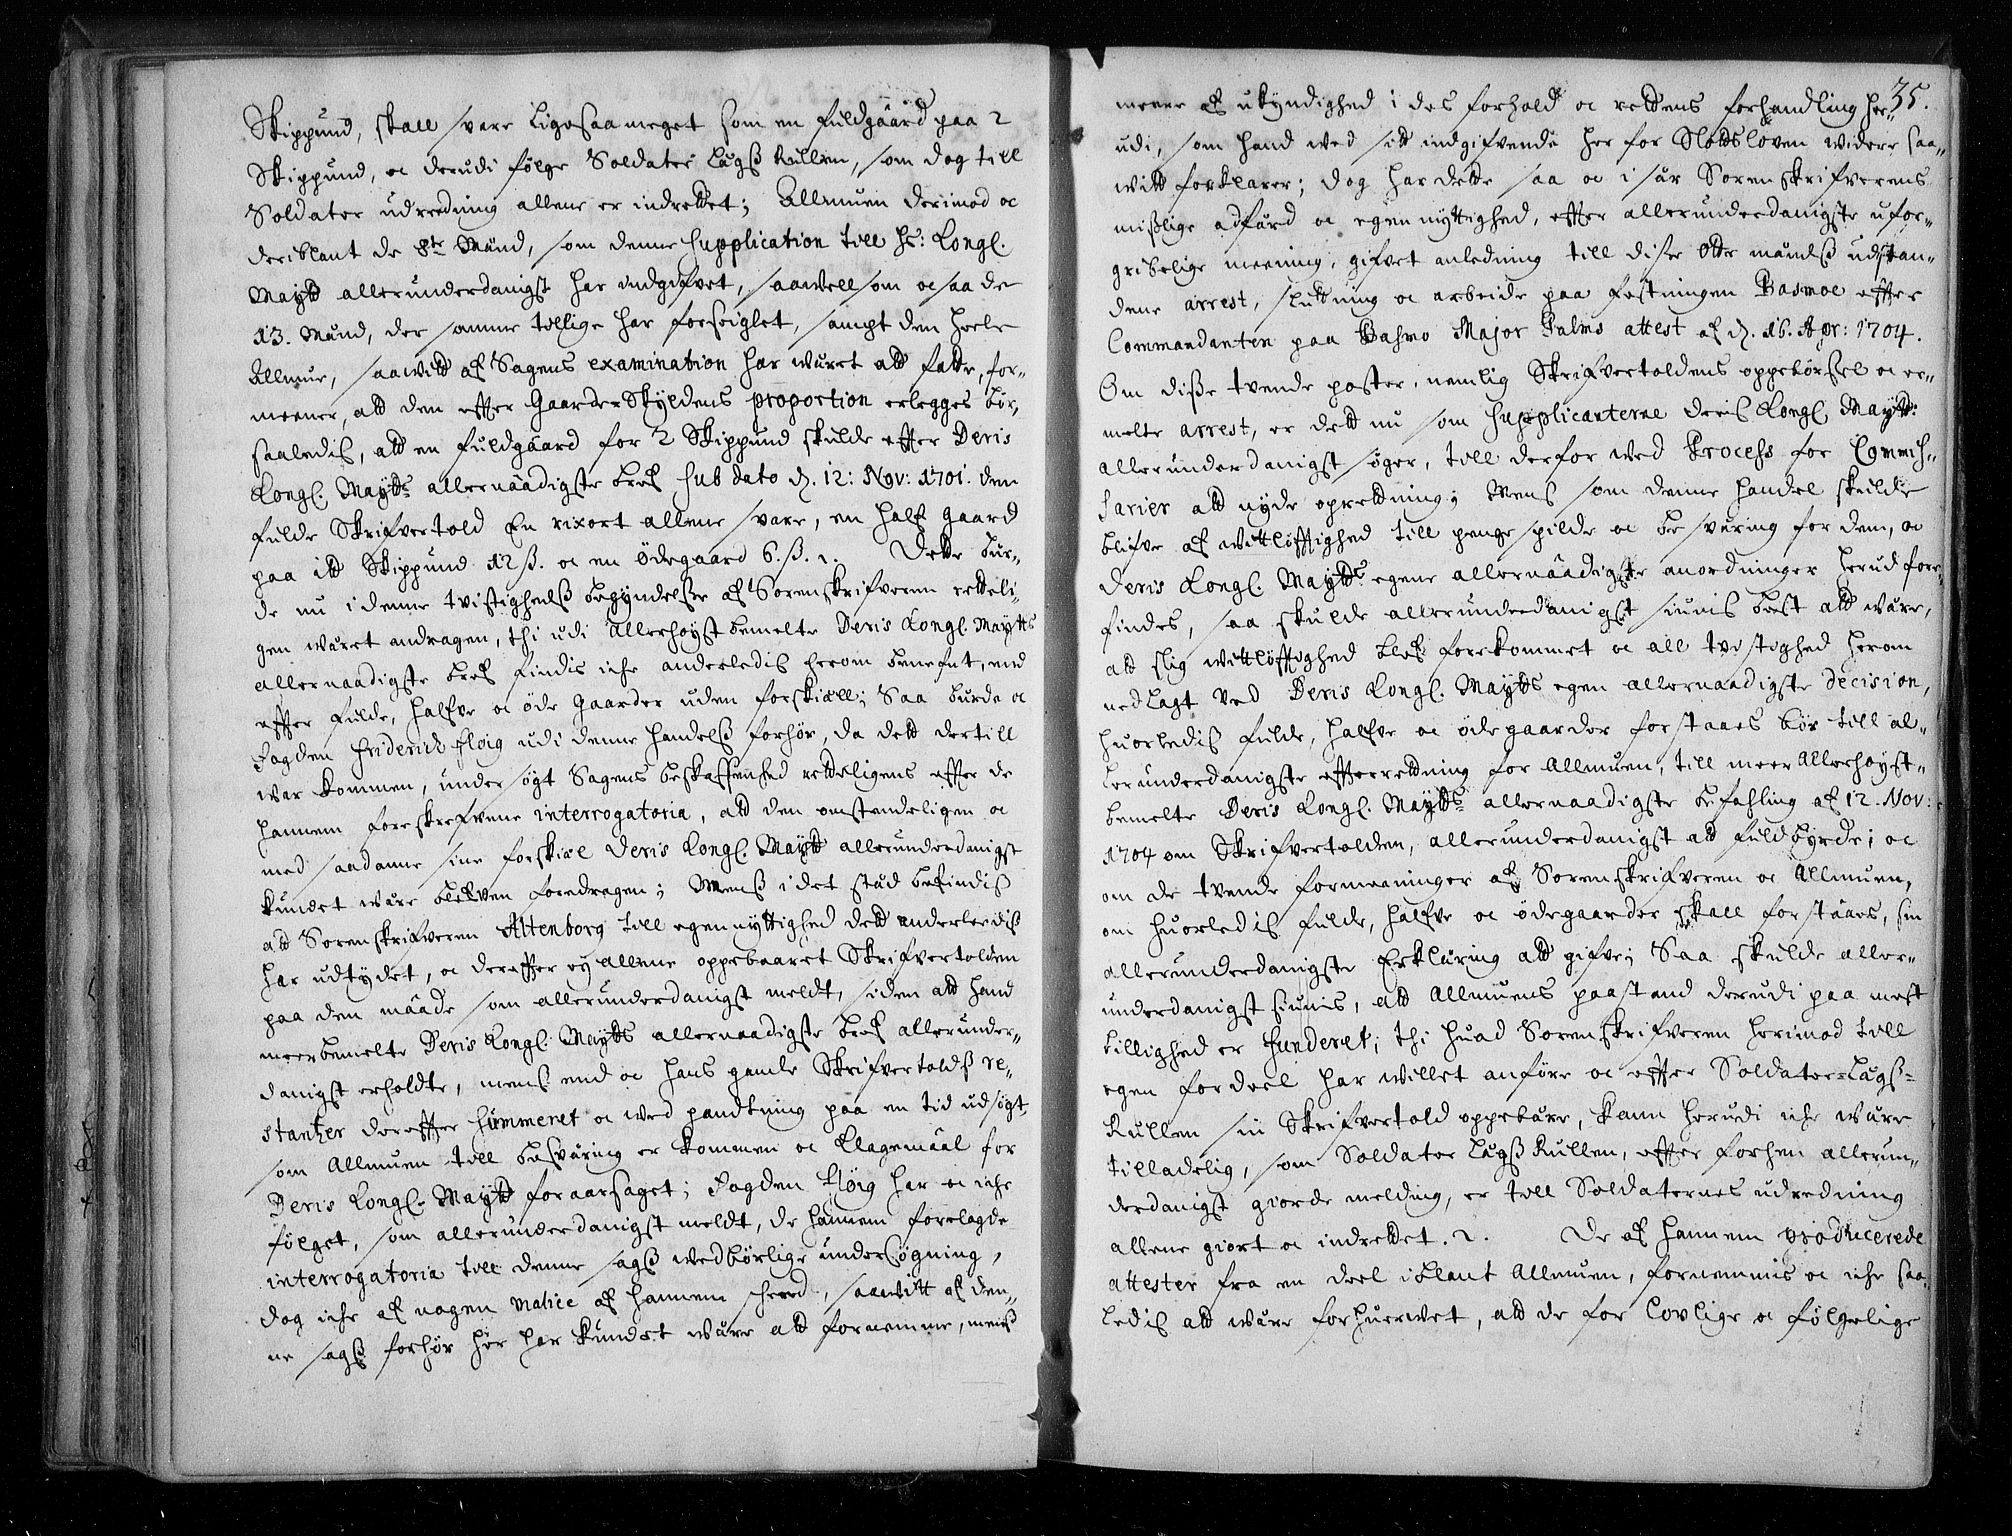 Skippund, skall svare ligesaa meget som en fuldgaard paa 2
Skippund, oc derudi følge Soldater Lægs Rullen, som dog till
Soldater udredning allene er indrettet; Allmuen derimod oc
deriblant de 8te Mænd, som denne Supplication till Hs: Kongl.
Maytt allerunderdanigst har indgifvet, saavell som ocsaa de
13. Mænd, der samme tillige har forseiglet, sampt den heele
Allmue, saavitt af Sagens examination har wæret att fatte, for-
meener, att den effter Gaarder Skyldens proportion erlegges bør,
saaledis, att en fuldgaard for 2 Skippund skulde effter Deris
Kongl. Maytts allernaadigste bref sub dato d. 12: Nov: 1701. den
fulde Skrifvertold En rixort allene svare, en half gaard
paa itt Skippund 12 ß. oc en ødegaard 6. ß. Dette bur-
de nu i denne tvistigheds begyndelse af Sorenskrifveren retteli-
gen wæret andragen, thi udi Allerhøyst bemelte Deris Kongl. Maytts
allernaadigste bref findis iche anderledis herom benefnt, end
effter fulde, halfve oc øde Gaarder uden forskiæll; Saa burde oc
Fogden Friderich Fløig udi denne handels forhør, da dett dertill
war kommen, undersøgt Sagens beskaffenhed retteligens effter de
hannem foreskrefvene interrogatoria, att den omstendeligen oc
med saadanne sine forskiæl Deris Kongl. Maytt allerunderdanigst
kundet wære blefven foredragen; Mens i det stæd befindis
att Sorenskrifveren Altenborg till egennyttighed dett anderleedis
har udtydet, oc dereffter ey allene oppebaaret Skrifvertolden
paa den maade som allerunderdanigst meldt, siden att hand
meerbemelte Deris Kongl. Maytts allernaadigste bref allerunder-
danigst erholdte, mens end oc hans gamle Skrifvertolds re-
stantzer dereffter summeret oc wed pandtning paa en tid udsøgt
som Allmuen till besværing er kommen oc Klagemaal for
Deris Kongl. Maytt foraarsaget; Fogden Fløig har oc iche
følget, som allerunderdanigst meldt, de hannem forelagde
interrogatoria till denne sags wedbørlige undersøgning,
dog iche af nogen malice af hannem scheed, saavitt af den-
ne sags forhør her har kundet wære att fornemme, mens
35.
meere af ukyndighed i des forhold oc rettens forhandling her-
udi, som hand wed sitt indgifvende her for Slottsloven widere saa-
witt forklarer; dog har dette saa oc i sær Sorenskrifverens
mislige adfærd oc egennyttighed, effter allerunderdanigste ufor-
gribelige meening, gifvet anledning till disse otte mænds udstan-
dene arrest, slutning oc arbeide paa festningen Basmoe effter
Commandanten paa Basmo Major Palms attest af d. 16. Apr: 1704.
Om disse tvende poster, nemlig Skrifvertoldens oppebørsel oc er-
melte arrest, er dett nu som Supplicanterne Deris Kongl. Maytt:
allerunderdanigst søger, till derfor wed Process for Commis-
sarier att nyde oprettning; Mens som denne handel skulde
blifve af wittløfftighed till penge spilde oc besværing for dem, oc
Deris Kongl. Maytts egene allernaadigste anordninger herud fore-
findes, saa skulde allerunderdanigst siunis best att wære,
att slig wittløfftighed blef forekommet oc all tvistighed herom
nedlagt ved Deris Kongl. Maytts egen allernaadigste decision,
huorledis fulde, halfve oc ødegaarder forstaaes bør till al-
lerunderdanigste effterrettning for Allmuen, till meer Allerhøyst-
bemelte Deris Kongl. Maytts allernaadigste befahling af 12. Nov:
1704 om Skrifvertolden, allerunderdanigst att fuldbyrde; oc
om de tvende formeeninger af Sorenskrifveren oc Allmuen,
om huorledis fulde, halfve oc ødegaarder skall forstaaes, sin
allerunderdanigste Erklæring att gifve; Saa skulde aller-
underdanigst siunis, att Allmuens paastand derudi paa mest
billighed er funderet; thi huad Sorenskrifveren herimod till
egen fordeel har willet anføre oc effter Soldater-Lægs-
Rullen sin Skrifvertold oppebære, kann herudi iche wære
tilladelig, som Soldater Lægs Rullen, effter forhen allerun-
derdanigst giorde melding, er till Soldaternes udredning
allene giort oc indrettet. De af hannem producerede
attester fra en deel iblant Allmuen, fornemmis oc iche saa-
ledis att wære forhuervet, att de for lovlige oc følgelige